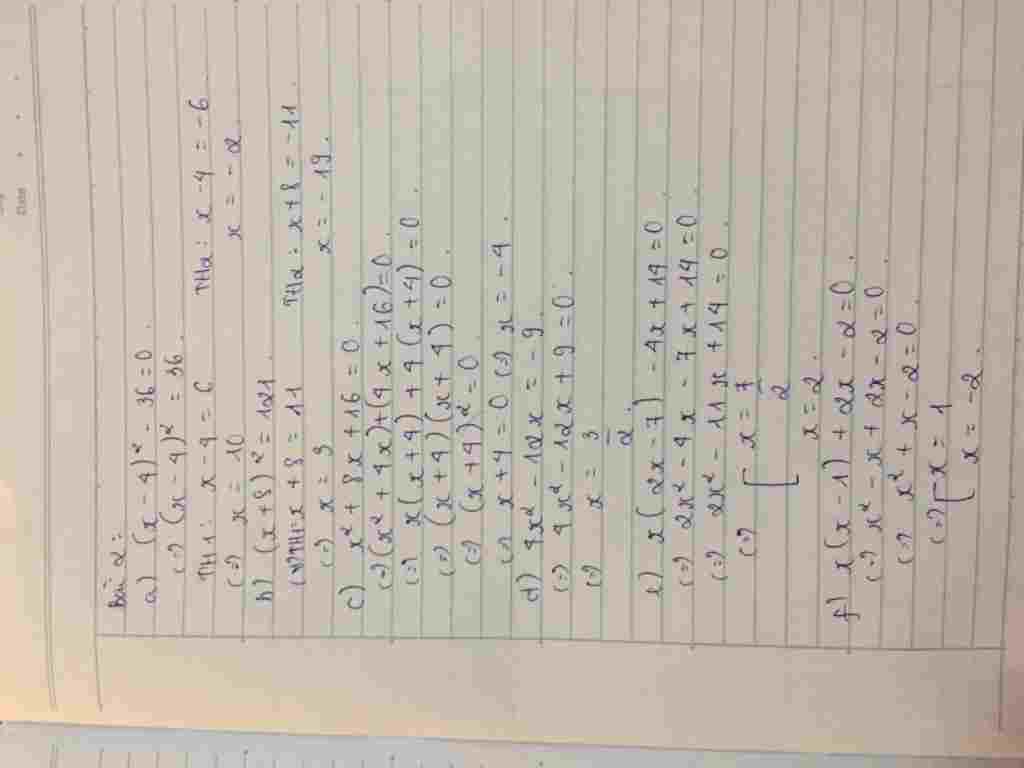 Date
Bài 2:
a) (x-4)² - 36 = 0.
(=) (x-4)² = 36
TH1: x-4 = 6 TH2: x-4 = -6
(=) x = 10 x = -2
b) (x+8)² = 121
(=) TH1= x+8 = 11 TH2: x+8 = -11.
(=) x = 3 x = -19.
c) x² + 8x + 16 = 0.
(=) (x² + 4x) + (4x + 16) = 0.
(=) x(x+4) + 4(x+4) = 0.
(=) (x+4)(x+4) = 0.
(=) (x+4)² = 0
(=) x+4 = 0 (=) x = -4.
d) 4x² - 12x = -9.
(=) 4x² - 12x + 9 = 0.
(=) x = 3/2
e) x(2x-7) - 4x + 14 = 0
(=) 2x² - 4x - 7x + 14 = 0
(=) 2x² - 11x + 14 = 0.
(=) [ x = 7/2
x = 2.
f) x(x-1) + 2x - 2 = 0.
(=) x² - x + 2x - 2 = 0
(=) x² + x - 2 = 0
(=) [ x = 1
x = -2.